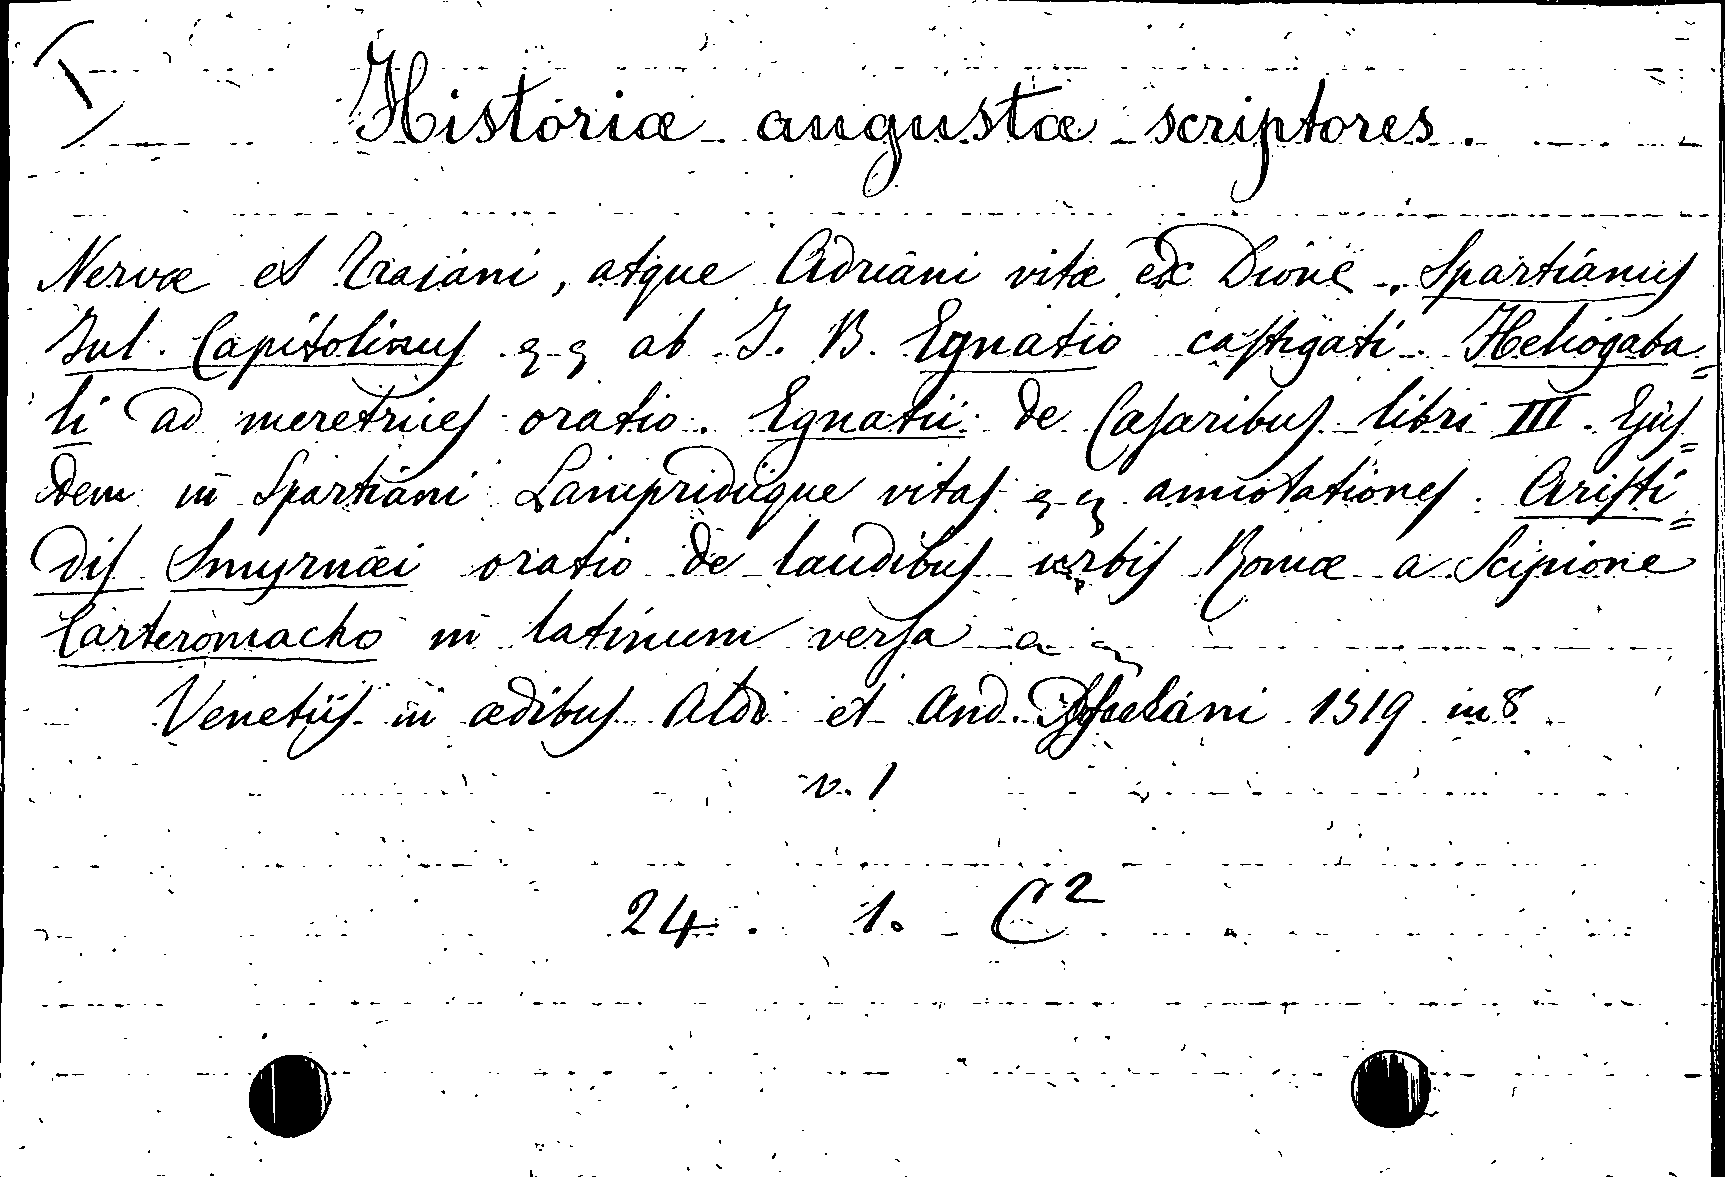 Historiæ augustæ scriptores.
Nervæ et Traiani, atque Adriani vitæ ex Dione. Spartianus
Jul. Capitolinus ab J. B. Egnatio castigati. Heliogaba=
li ad meretrices oratio. Egnatii de Cæsaribus libri III. Ejus=
dem in Spartiani Lampridiique vitas annotationes. Aristi=
dis Smyrnæi oratio de laudibus urbis Romæ a Scipione
Carteromacho in latinum versa
Venetiis in ædibus Aldi et And. 1519 in 8
v. 1
24. 1. C²